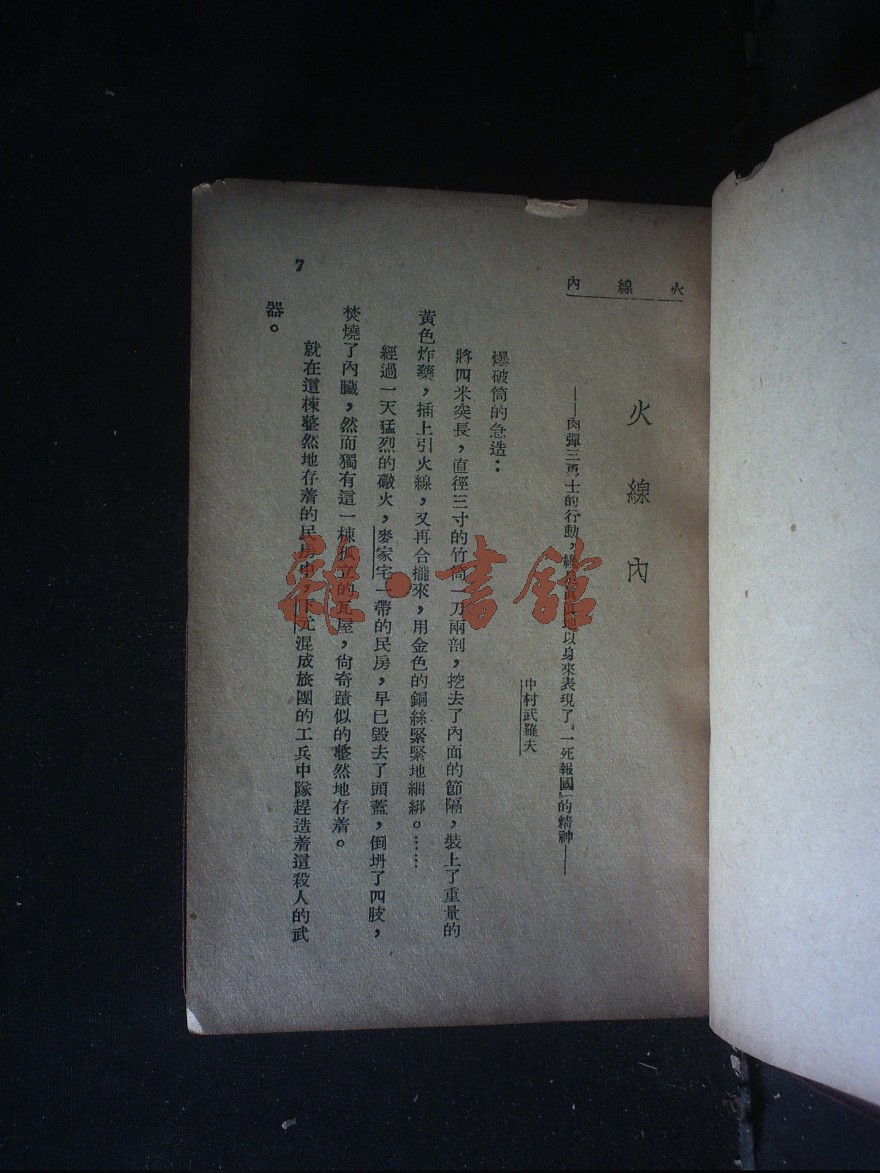 火線內
火線內
——肉彈三勇士的行動，以身來表現了「一死報國」的精神——
中村武羅夫
爆破筒的急造：
將四米突長，直徑三寸的竹筒一刀兩剖，挖去了內面的節隔，裝上了重量的
黃色炸藥，插上引火線，又再合攏來，用金色的銅絲緊緊地綑綁。……
經過一天猛烈的礮火，麥家宅一帶的民房，早已毀去了頭蓋，倒坍了四肢，
焚燒了內臟，然而獨有這一棟孤立的瓦屋，尙奇蹟似的整然地存着。
就在這棟整然地存着的民房中，下元混成旅團的工兵中隊趕造着這殺人的武
器。
7
雜·書館